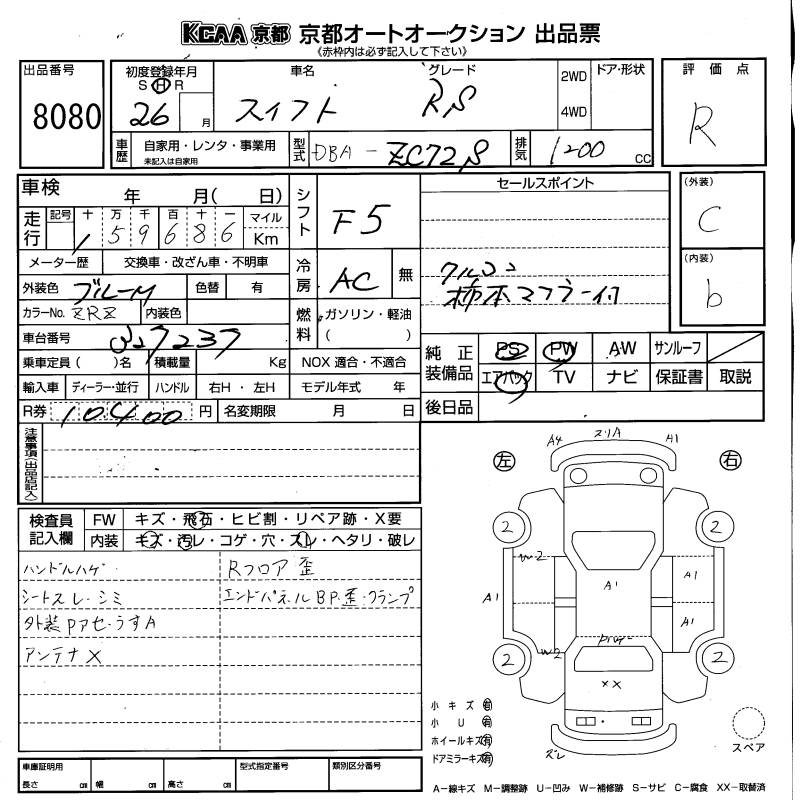 KCAA 京都 京都オートオークション 出品票
《赤枠内は必ず記入して下さい》
出品番号 8080
初度登録年月 S H R 26 月
車名 スイフト
グレード RS
2WD 4WD
ドア・形状
評価点 R
車歴 自家用・レンタ・事業用 未記入は自家用
型式 DBA-ZC72S
排気 1200 CC
車検 年 月( 日)
シフト F5
セールスポイント
(外装) C
走行 記号 十 万 千 百 十 一 マイル Km
159686
メーター歴 交換車・改ざん車・不明車
冷房 AC 無
クルコン
柿本マフラー付
(内装) b
外装色 ブルーM 色替 有
カラーNo. ZRZ 内装色
燃料 ガソリン・軽油 ( )
車台番号 327237
純正装備品 PS PW AW サンルーフ
エアバック TV ナビ 保証書 取説
乗車定員( )名 積載量 Kg NOX 適合・不適合
輸入車 ディーラー・並行 ハンドル 右H・左H モデル年式 年
後日品
R券 10,400 円 名変期限 月 日
注意事項(出品店記入)
検査員記入欄
FW キズ・飛石・ヒビ割・リペア跡・X要
内装 キズ・汚レ・コゲ・穴・スレ・ヘタリ・破レ
ハンドルハゲ
Rフロア歪
シートスレ・シミ
エンドパネルBP・歪・クランプ
外装Pアセ・うすA
アンテナX
左 右
A4 スリA A1
2 2
W2
A1 A1 A1 A1
W2
2 2
XX
ズレ
小キズ 有
小U 有
ホイールキズ 有
ドアミラーキズ 有
スペア
車庫証明用 長さ cm 幅 cm 高さ cm
型式指定番号
類別区分番号
A－線キズ M－調整跡 U－凹み W－補修跡 S－サビ C－腐食 XX－取替済